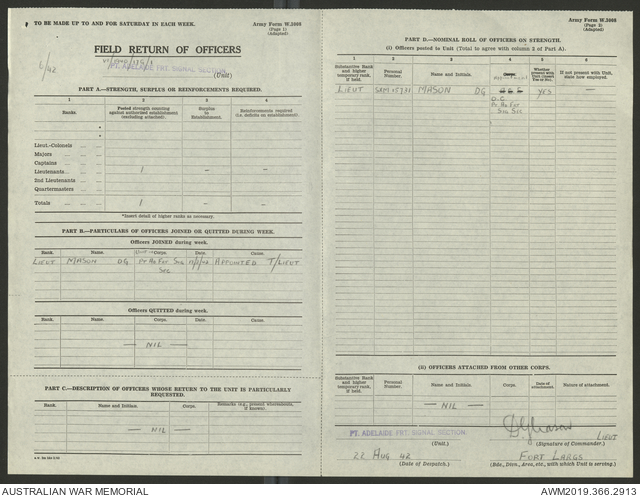 TO BE MADE UP TO AND FOR SATURDAY IN EACH WEEK.
Army Form W.3066
(Page 1)
(Adapted)
6/42
FIELD RETURN OF OFFICERS
PT. ADELAIDE FRT. SIGNAL SECTION.
(Unit)
PART A.—STRENGTH, SURPLUS OR REINFORCEMENTS REQUIRED.
1 2 3 4
Ranks. Posted strength counting against authorized establishment (excluding attached). Surplus to Establishment. Reinforcements required (i.e. deficits on establishment).
*
*
Lieut.-Colonels
Majors
Captains
Lieutenants 1 — —
2nd Lieutenants
Quartermasters
Totals 1 — —
*Insert detail of higher ranks as necessary.
PART B.—PARTICULARS OF OFFICERS JOINED OR QUITTED DURING WEEK.
Officers JOINED during week.
Rank. Name. Corps. Date. Cause.
LIEUT MASON DG Pt Ad Frt Sig APPOINTED T/LIEUT
Sec
Officers QUITTED during week.
Rank. Name. Corps. Date. Cause.
— NIL —
PART C.—DESCRIPTION OF OFFICERS WHOSE RETURN TO THE UNIT IS PARTICULARLY
REQUESTED.
Rank. Name and Initials. Corps. Remarks (e.g., present whereabouts, if known).
— NIL —
Army Form W.3066
(Page 2)
(Adapted)
PART D.—NOMINAL ROLL OF OFFICERS ON STRENGTH.
(i) Officers posted to Unit (Total to agree with column 2 of Part A).
1 2 3 4 5 6
Substantive Rank and higher temporary rank, if held. Personal Number. Name and Initials. Corps. Whether present with Unit (insert Yes or No). If not present with Unit, state how employed.
LIEUT MASON DG O.C. YES —
Pt Ad Frt
Sig Sec
(ii) OFFICERS ATTACHED FROM OTHER CORPS.
Substantive Rank and higher temporary rank, if held. Personal Number. Name and Initials. Corps. Date of attachment. Nature of attachment.
— NIL —
PT. ADELAIDE FRT. SIGNAL SECTION.
DGMason LIEUT
(Unit.) (Signature of Commander.)
22 AUG 42 FORT LARGS
(Date of Despatch.) (Bde., Divn., Area, etc., with which Unit is serving.)
AUSTRALIAN WAR MEMORIAL AWM2019.366.2913